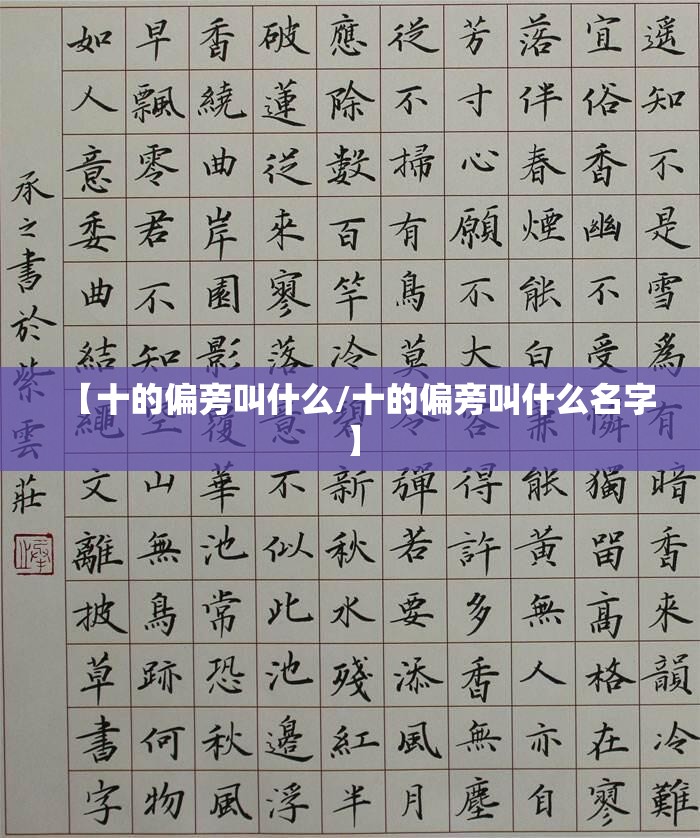 遥知不是雪為有暗香來韻冷難
宜俗香幽不受憐獨留高格在寥
落伴春煙能白兼能黃無人亦自
芳寸心願不大容得許多香無塵
從不掃有鳥莫令彈若要添風月
應除數百竿冷碧新秋水殘紅半
破蓮從來寥落意不似此池邊浮
香繞曲岸園影覆華池常恐秋風
早飄零君不知空山無鳥跡何物
如人意委曲結繩文離披草書字
承之書於紫雲莊
【十的偏旁叫什么/十的偏旁叫什么名字
】